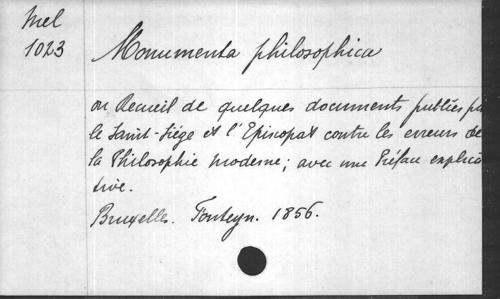 Mel
1023
Monumenta philosophica
ou Recueil de quelques documents publiés pa
le Saint-Siège et l'Episcopat contre les erreurs de
la Philosophie moderne; avec une Préface explica
tive.
Bruxelles. Fonteyn. 1856.